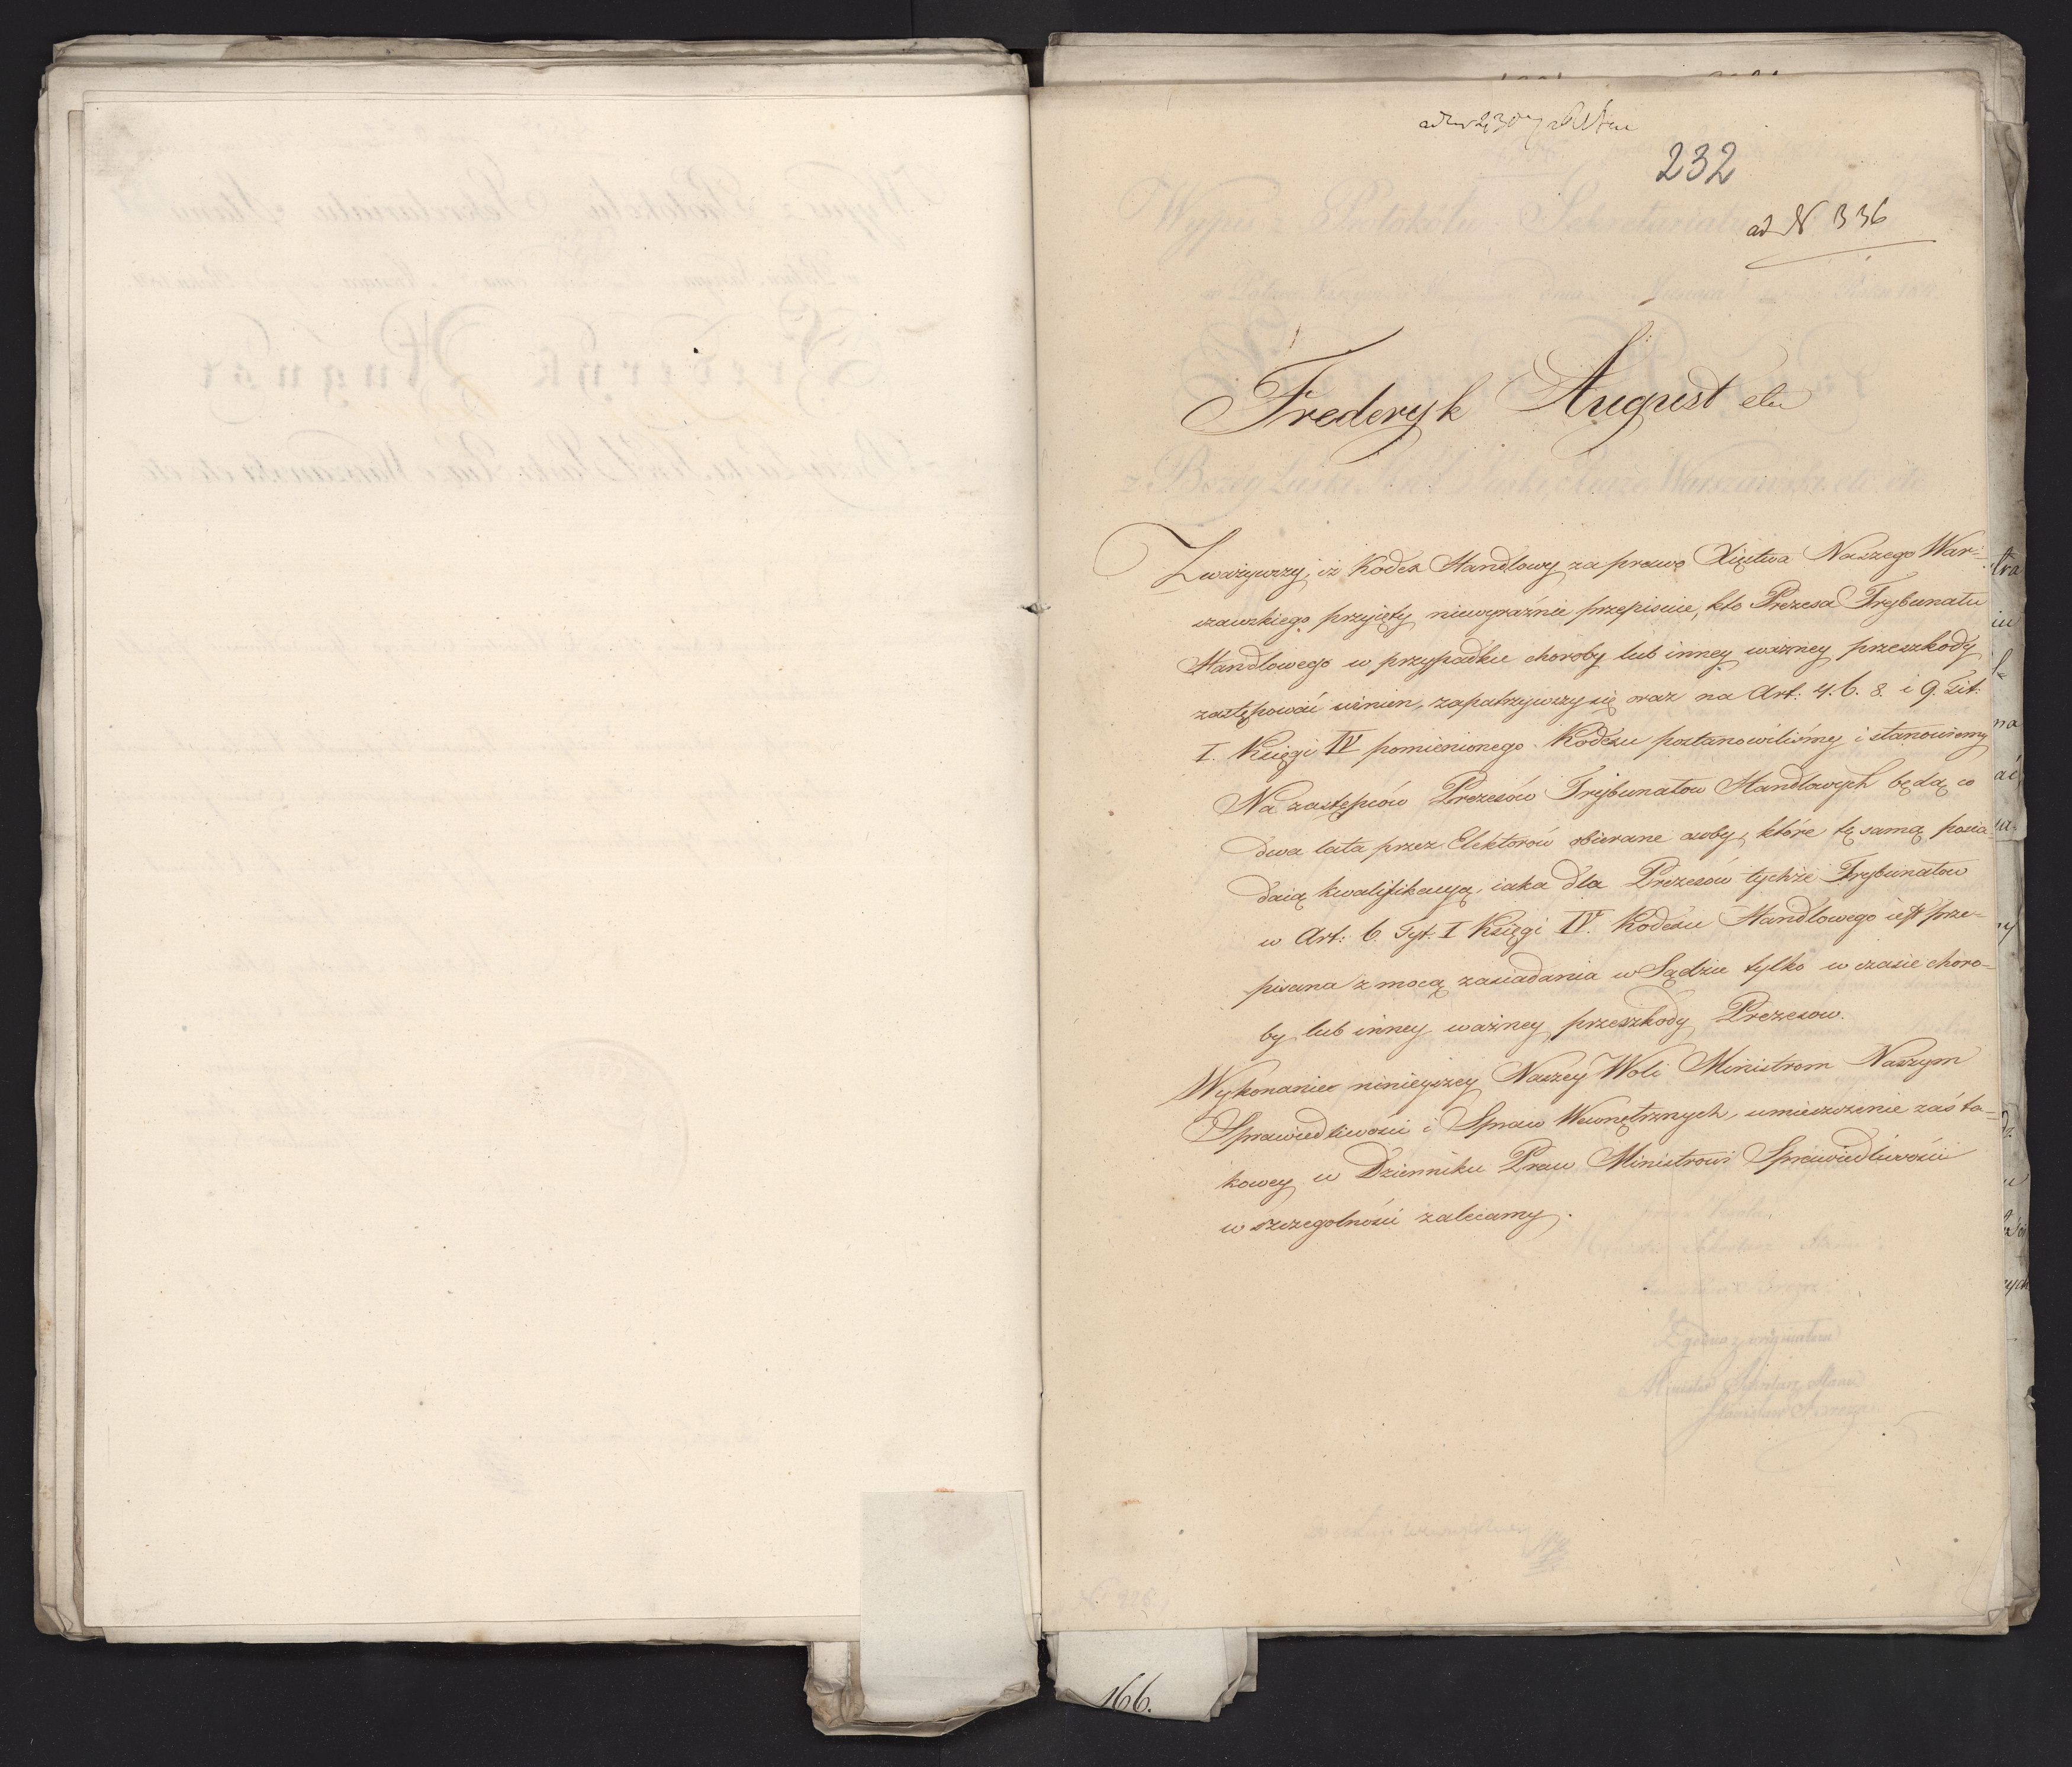 232
ad N 336
Frederyk August etc
Zważywszy, iż Kodex Handlowy za prawo Xięstwa Naszego War-
szawskiego przyięty niewyraźnie przepisuie, kto Prezesa Trybunału
Handlowego w przypadku choroby lub inney ważney przeszkody
zastępować winien, zapatrzywszy się oraz na Art: 4. 6. 8. i 9. Tit:
I. Księgi IV pomienionego Kodexu postanowiliśmy i stanowiemy
Na zastępców Prezesów Trybunałow Handlowych będą co
dwa lata przez Elektorów obierane osoby, które tę samą posia-
daią kwalifikacyą, iaka dla Prezesów tychże Trybunałow
w Art: 6. Tyt: I Księgi IV. Kodexu Handlowego iest prze-
pisana z mocą zasiadania w Sądzie tylko w czasie choro-
by lub inney ważney przeszkody Prezesow.
Wykonanie ninieyszey Naszey Woli Ministrom Naszym
Sprawiedliwości i Spraw Wewnętrznych, umieszczenie zaś ta-
kowey w Dzienniku Praw Ministrowi Sprawiedliwości
w szczegolności zalecamy.
166.